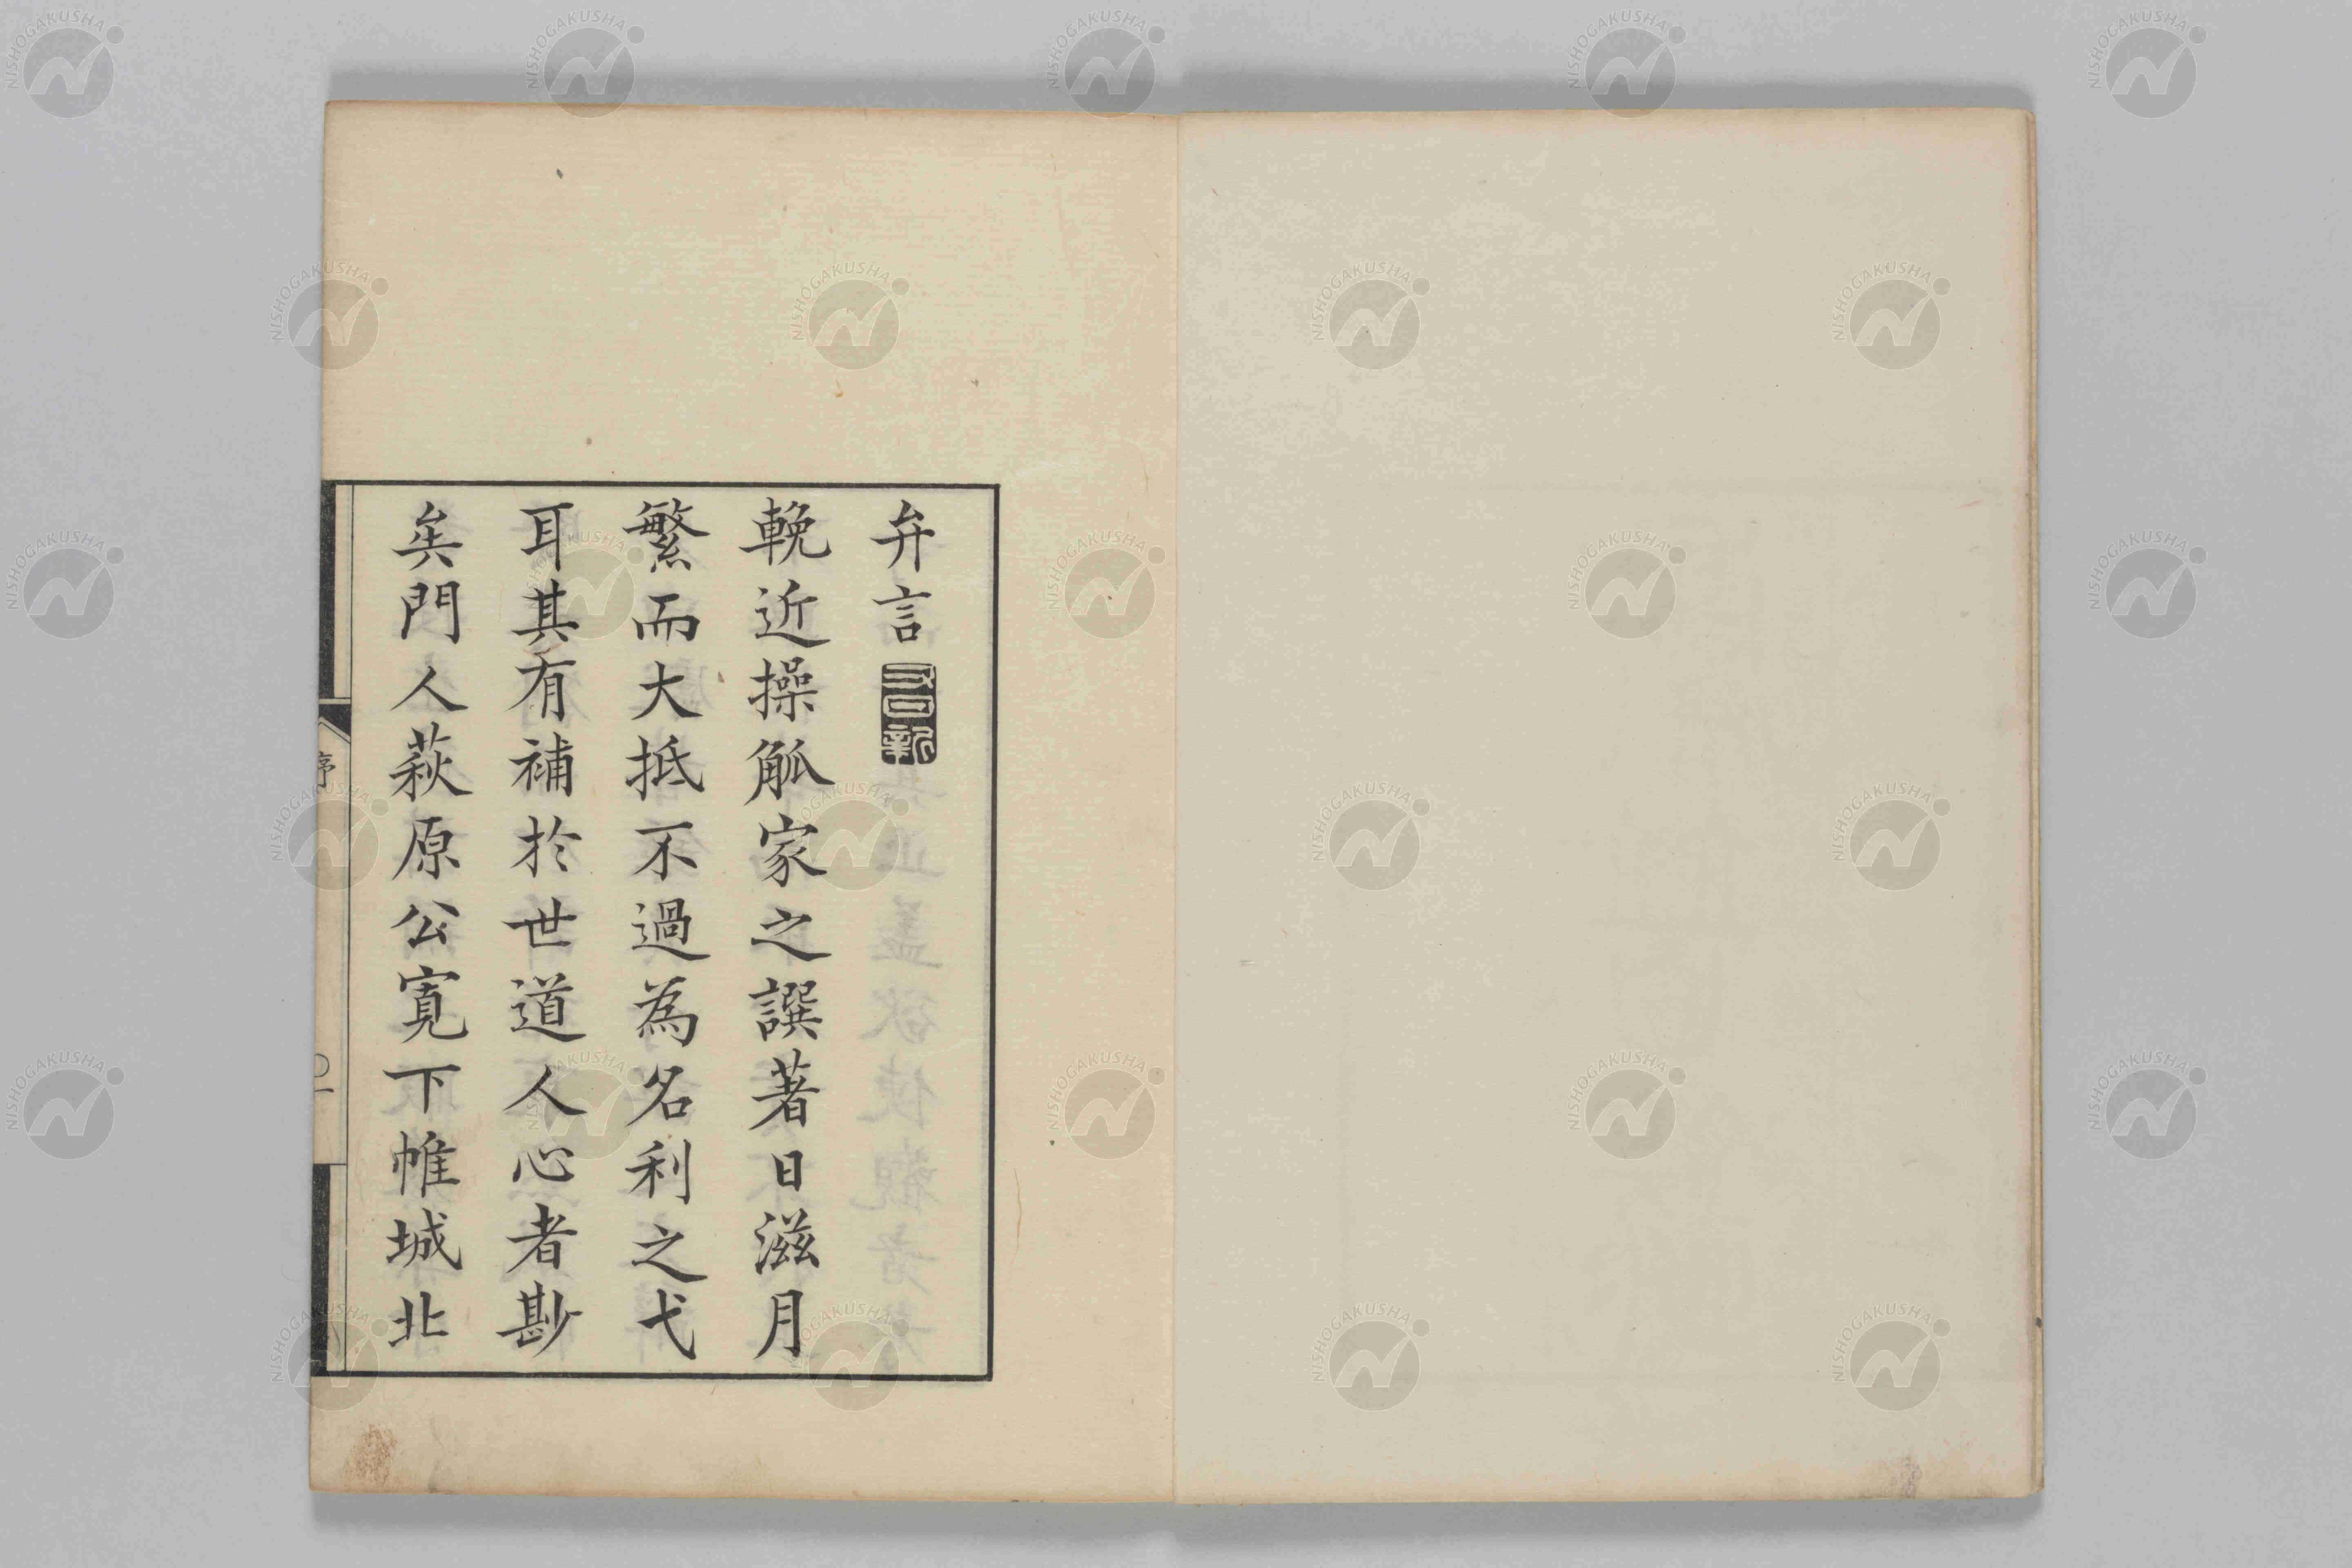 弁言
輓近操觚家之譔著日滋月
繁而大抵不過為名利之弋
耳其有補於世道人心者尠
矣門人萩原公寬下帷城北
序
一
NISHOGAKUSHA